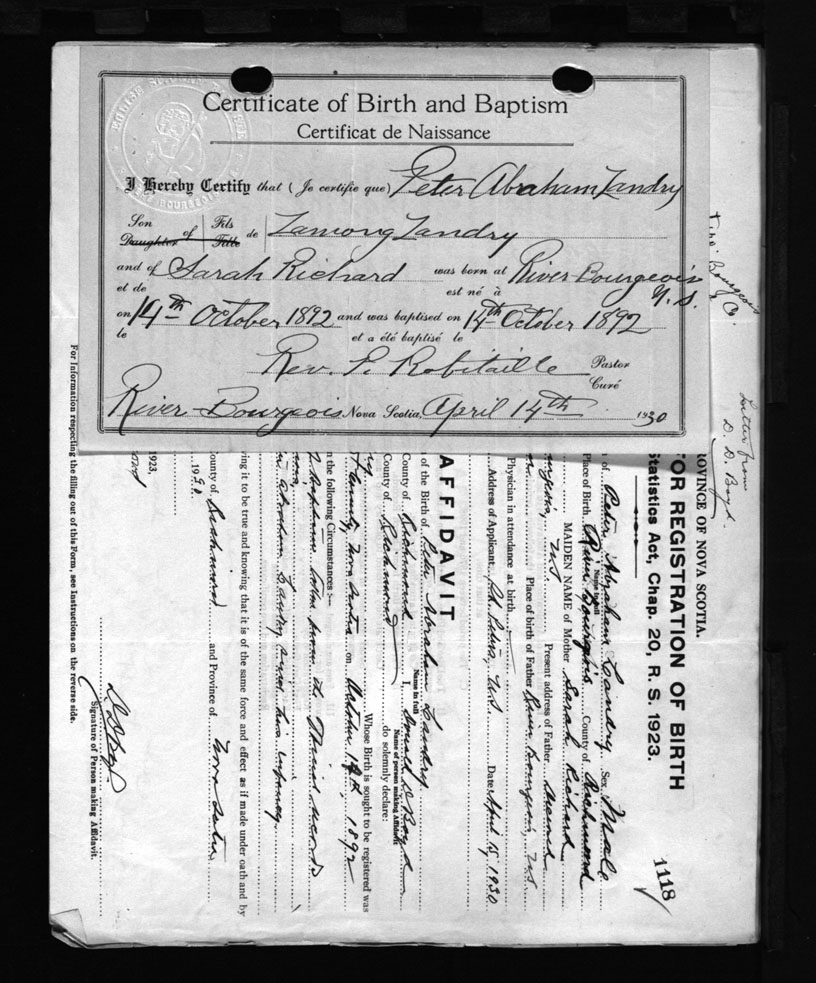 Certificate of Birth and Baptism
Certificat de Naissance
I Hereby Certify that (Je certifie que) Peter Abraham Landry
Son Daughter of Fils Fille de Lamong Landry
and of et de Sarah Richard was born at est né à River Bourgeois N.S.
on le 14th October 1892 and was baptised on et a été baptisé le 14th October 1892
Rev. P. Robitaille Pastor Curé
River Bourgeois Nova Scotia, April 14th 1930
Bourgeois
Letter from
D. D. Boyd.
PROVINCE OF NOVA SCOTIA.
FOR REGISTRATION OF BIRTH
Statistics Act, Chap. 20, R. S. 1923.
1118
of Peter Abraham Landry Sex Male
Name in full
Place of Birth River Bourgeois County of Richmond
MAIDEN NAME of Mother Sarah Richard
N S Present address of Father
Place of birth of Father River Bourgeois, N S
Physician in attendance at birth
Address of Applicant N.S. Date April 15, 1930
AFFIDAVIT
of the Birth of Peter Abraham Landry
Name in full
County of Richmond I, Donald D Boyd
Name of person making Affidavit
County of Richmond do solemnly declare:
Whose Birth is sought to be registered was
County, Nova Scotia on October 14th, 1892
in the following Circumstances:—
Abraham Landry since his infancy
ing it to be true and knowing that it is of the same force and effect as if made under oath and by
County of Richmond and Province of Nova Scotia
1923.
D D Boyd
Signature of Person making Affidavit.
For Information respecting the filling out of this Form, see Instructions on the reverse side.